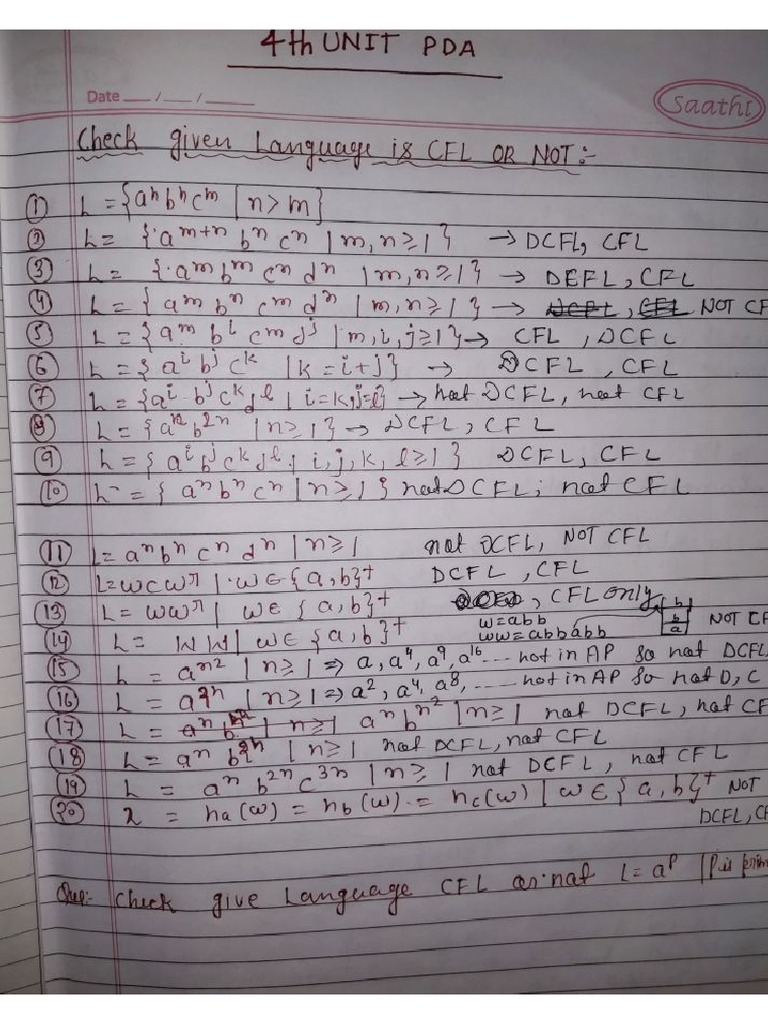 4th UNIT PDA
Date __/__/____
Saathi
Check given Language is CFL OR NOT:-
① L = {aⁿbⁿcᵐ | n > m}
② L = {a^{m+n} bⁿ cⁿ | m,n ≥ 1} → DCFL, CFL
③ L = {aᵐ bᵐ cⁿ dⁿ | m,n ≥ 1} → DEFL, CFL
④ L = {aᵐ bⁿ cᵐ dⁿ | m,n ≥ 1} → DCFL, CFL NOT CF
⑤ L = {aᵐ bⁱ cᵐ dʲ | m,i,j ≥ 1} → CFL, DCFL
⑥ L = {aⁱ bʲ cᵏ | k = i+j} → DCFL, CFL
⑦ L = {aⁱ bʲ cᵏ dˡ | i=k, j=l} → not DCFL, not CFL
⑧ L = {aⁿ b²ⁿ | n ≥ 1} → DCFL, CFL
⑨ L = {aⁱ bʲ cᵏ dˡ | i, j, k, l ≥ 1} DCFL, CFL
⑩ L = {aⁿ bⁿ cⁿ | n ≥ 1} not DCFL, not CFL
⑪ L = aⁿ bⁿ cⁿ dⁿ | n ≥ 1 not DCFL, NOT CFL
⑫ L = wcwʳ | w ∈ {a, b}⁺ DCFL, CFL
⑬ L = wwʳ | w ∈ {a, b}⁺ , CFL only
⑭ L = WW | w ∈ {a, b}⁺ w = abb b b a NOT CF
ww = abbabb
⑮ L = a^{n2} | n ≥ 1 ⇒ a, a⁴, a⁹, a¹⁶ .... not in AP so not DCFL,
⑯ L = a^{2^n} | n ≥ 1 ⇒ a², a⁴, a⁸, ...... not in AP so not D, C
⑰ L = aⁿ b^{n^2} | n ≥ 1 aⁿ b^{n^2} | n ≥ 1 not DCFL, not CF
⑱ L = aⁿ b^{2^n} | n ≥ 1 not DCFL, not CFL
⑲ L = aⁿ b²ⁿ c³ⁿ | n ≥ 1 not DCFL, not CFL
⑳ L = na(w) = nb(w) = nc(w) | w ∈ {a, b}⁺ NOT
DCFL, CF
Que:- Check give Language CFL or not L = aᵖ | P is prim